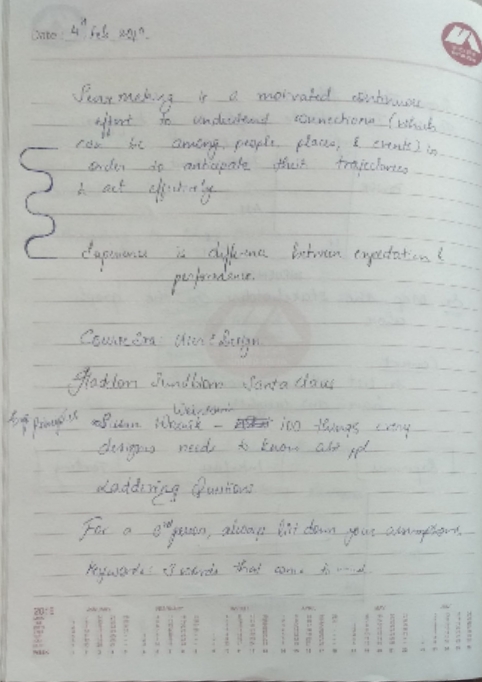 Date: 4th Feb 2019
Sensemaking is a motivated continuous
effort to understand connections (which
can be among people places, & events) in
order to anticipate their trajectories
& act effectively
Experience is difference between expectation &
performance.
Coursera: User Design
Haddon Sundblom Santa Claus
Susan Weinschenk - 100 things every
designer needs to know abt ppl
Laddering Questions
For a 3rd person, always list down your assumptions
Keywords: 3 words that come to mind
2019